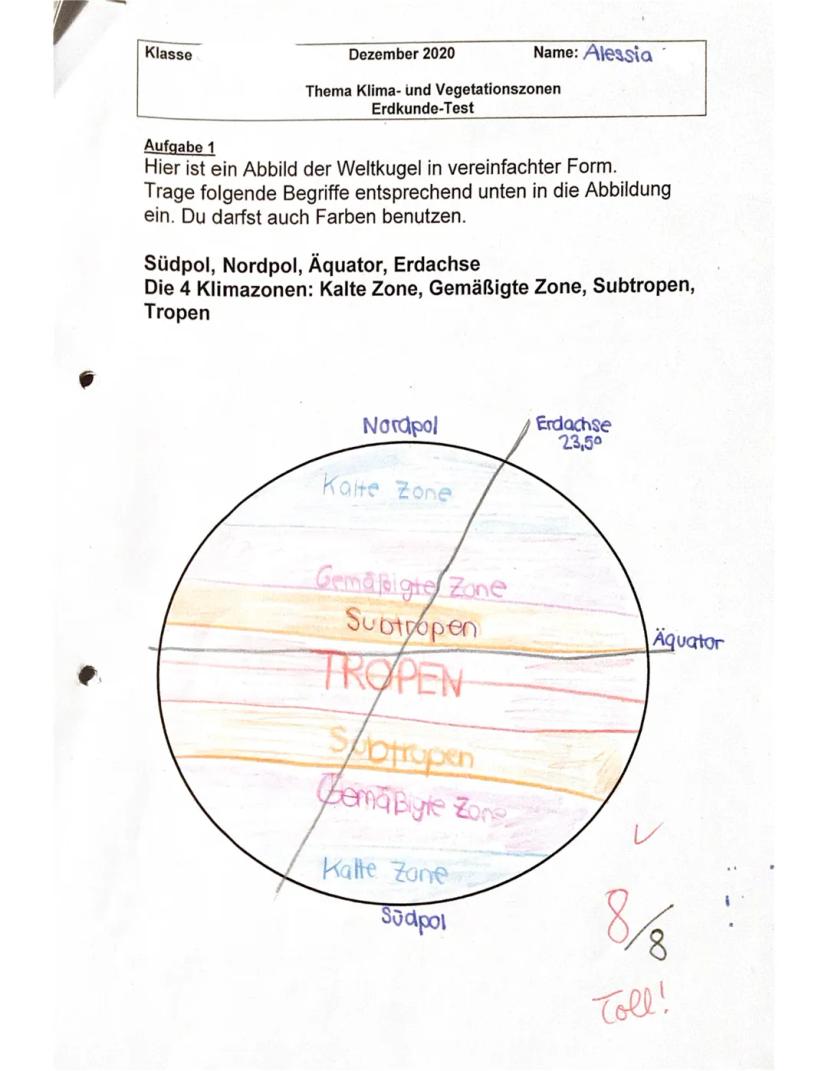 Klasse Dezember 2020 Name: Alessia
Thema Klima- und Vegetationszonen
Erdkunde-Test
Aufgabe 1
Hier ist ein Abbild der Weltkugel in vereinfachter Form.
Trage folgende Begriffe entsprechend unten in die Abbildung
ein. Du darfst auch Farben benutzen.
Südpol, Nordpol, Äquator, Erdachse
Die 4 Klimazonen: Kalte Zone, Gemäßigte Zone, Subtropen,
Tropen
Nordpol
Erdachse
23,5°
Kalte Zone
Gemäßigte Zone
Subtropen
Äquator
TROPEN
Subtropen
Gemäßigte Zone
Kalte Zone
Südpol
8/8
Toll!